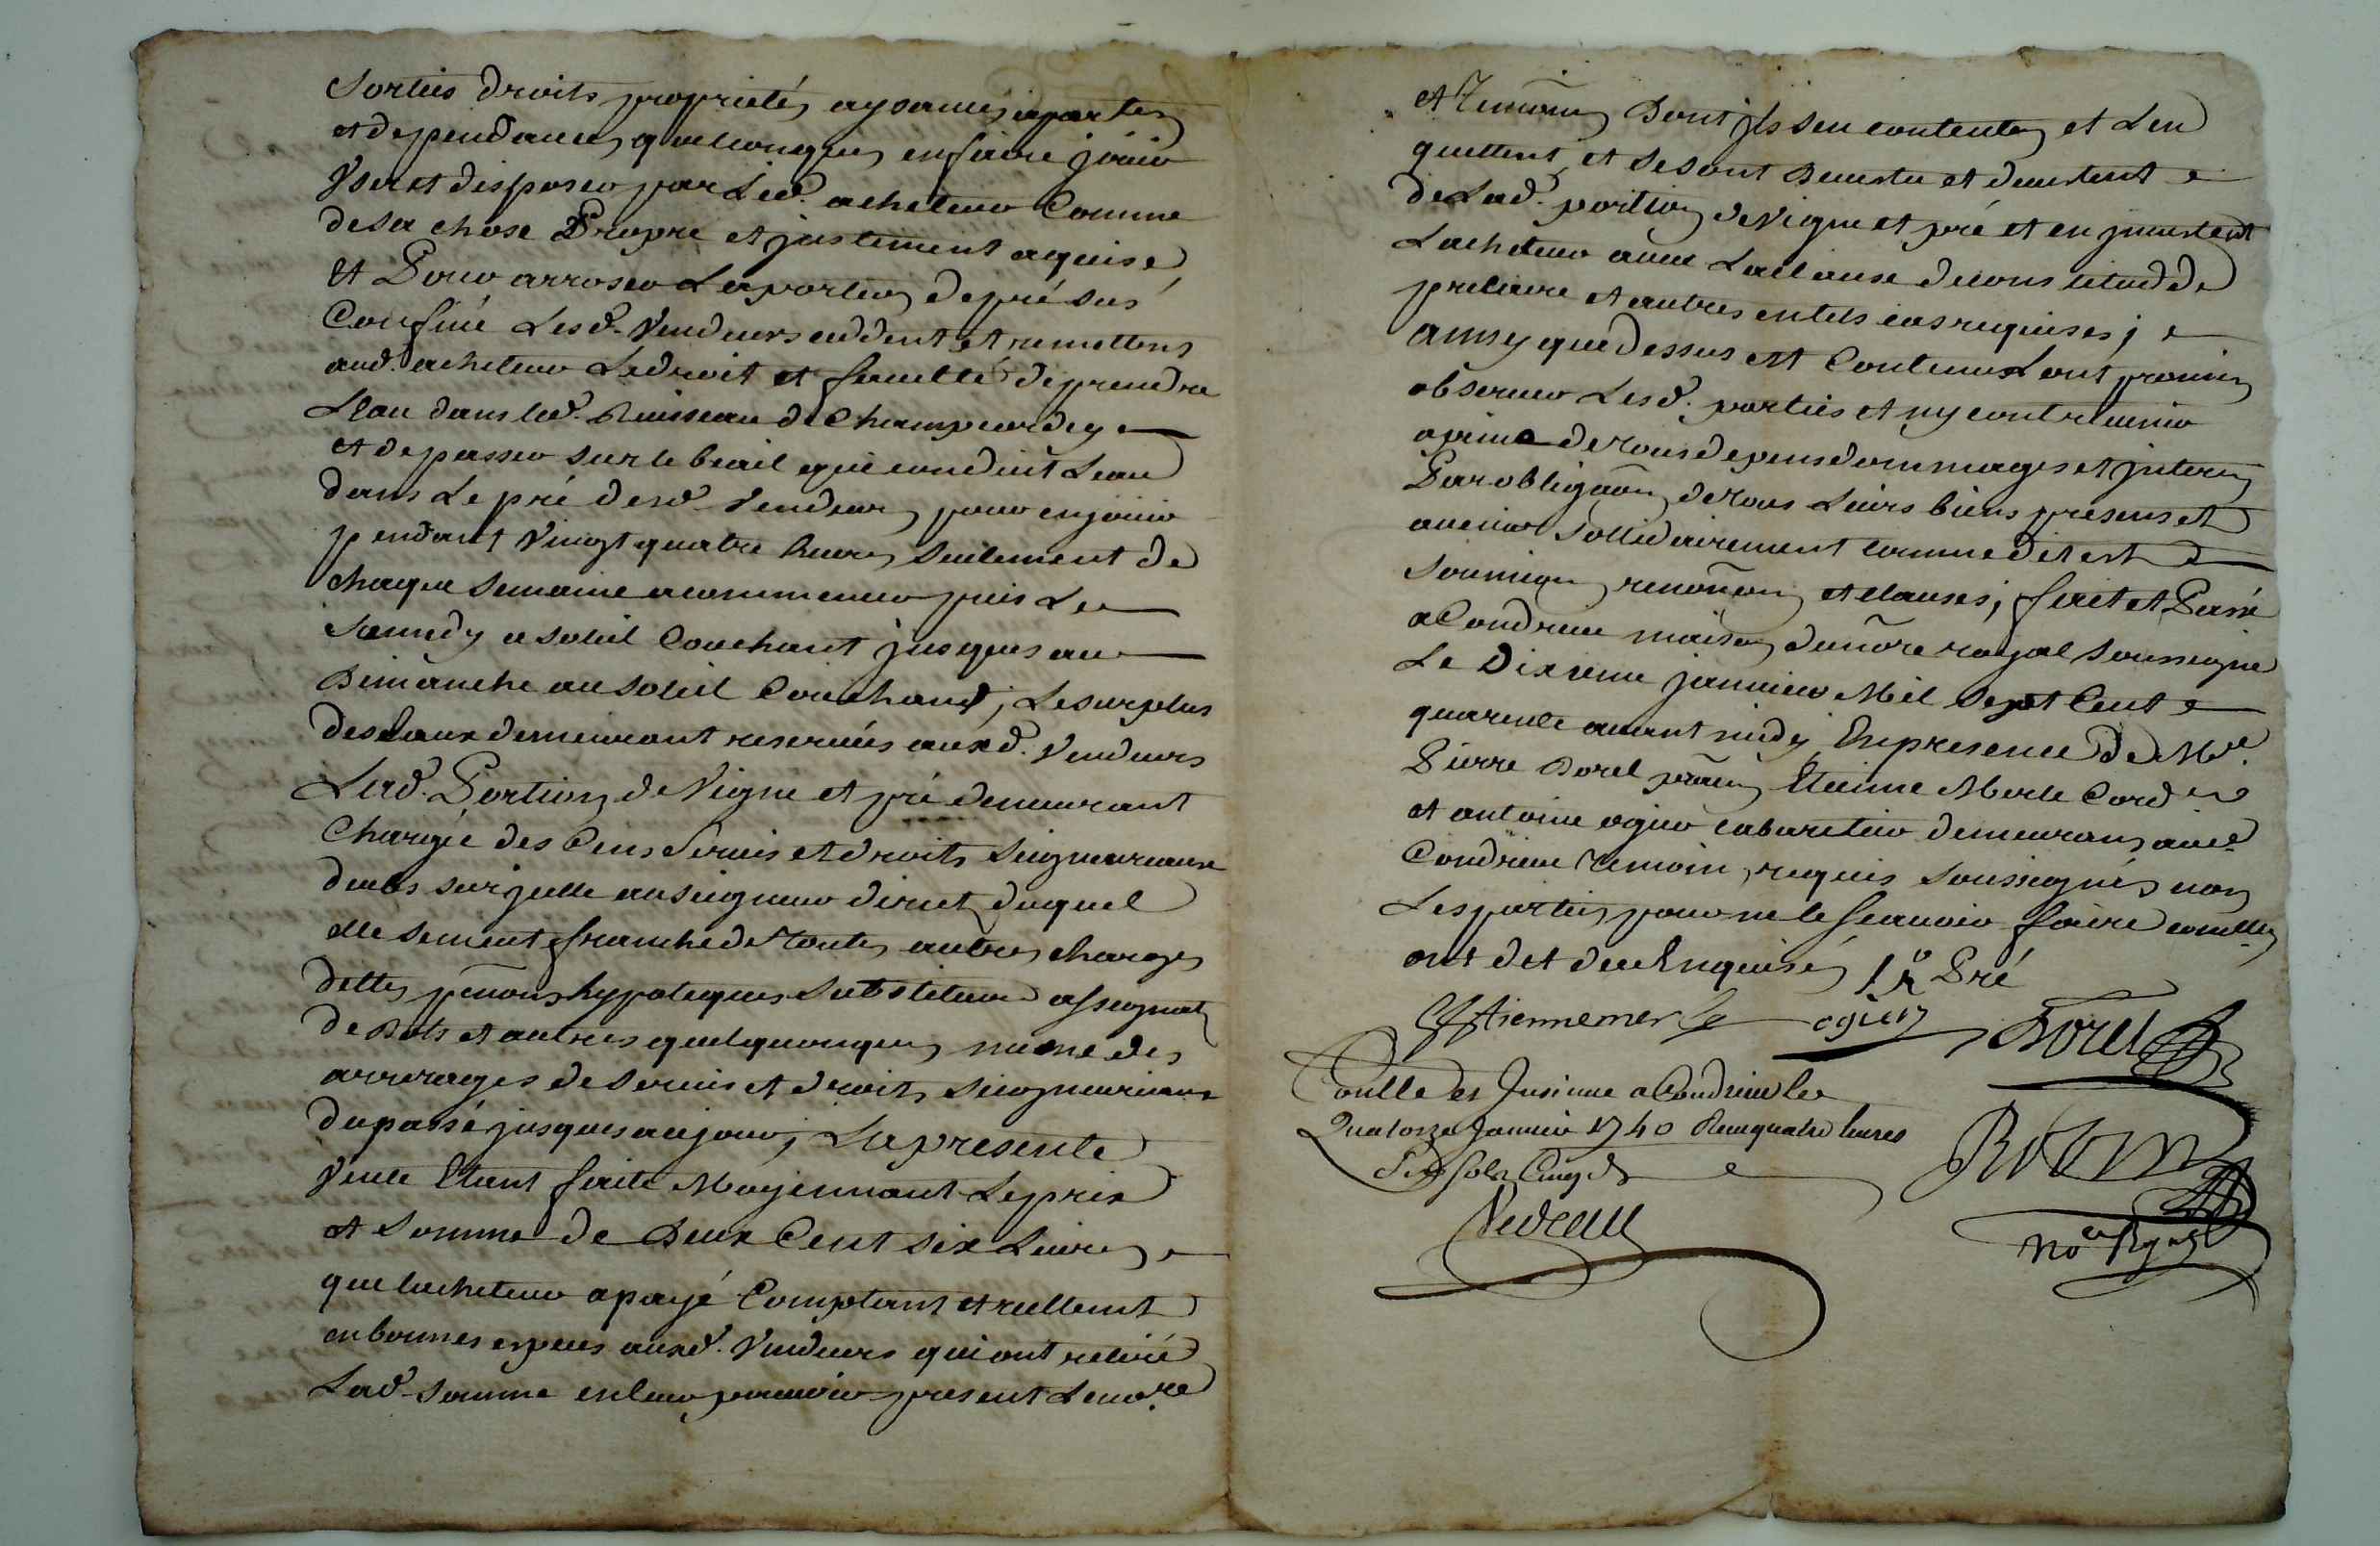 Sorties droits proprietés aysances apartces
et dependances quelconques en faire jouir
User et disposer par Led. acheteur Comme
de sa chose Propre et justement aquise
Et Pour arroser La portion de pré sus
Confiné Lesd. Vendeurs ceddent et remettent
aud. acheteur Le droit et faculté de prendre
L'eau dans led. Ruisseau de Champcordey
et de passer sur le beail qui conduit L'eau
dans Le pré desd. Vendeurs pour en jouir
pendant Vingt quatre heures seulement de
chaque semaine a commencer puis Le
Samedy a soleil Couchant jusques au
Dimanche au soleil Couchant, Le surplus
des Eaux demeurant reservées auxd. Vendeurs
Lad. Portion de Vigne et pré demeurant
Chargée des Cens Servis et droits Seigneuriaux
deubs sur jcelle au seigneur direct duquel
elle se meut franche de toutes autres charges
dettes pentions hypoteques substitution assignat
de Dots et autres quelquonques meme des
arrerages de servis et droits Seigneuriaux
du passé jusques aujourd, La presente
Vente Etant faite Moyennant Le prix
et Somme de Deux Cent six Livres
que lacheteur a payé Comptant et reellemt
en bonnes especes auxd. Vendeurs qui ont retiré
Lad. somme en leur pouvoir present Le nore
et Temoins Dont jls s'en contentent et L'en
quittent, et se sont Devestu et devestent
de Lad. portion de Vigne et pré et en jnvestent
Lacheteur avec La clause de constitud de
precaire et autres en tels cas requises;
ainsy que dessus est Contenu L'ont promis
observer Lesd. parties et n'y contrevenir
a peine de tous depens dommages et jnterets
Par obligaõn de tous Leurs biens presens et
avenir sollidairement comme dit est
soumiõn renonõn et clauses, fait et Passé
a Condrieu maison du nõre royal soussigné
Le Dixieme janvier Mil Sept Cent
quarente avant midy En presence De Me.
Pierre Borel praen Etienne Merle Cord
et antoine ogier cabaretier demeurans aud
Condrieu Temoins requis soussignés non
Les parties pour ne le scavoir faire comme elles
ont dit de ce Enquises, Pré
Estienne merle ogier Borel
Conllé et Insinué a Condrieu le
Quatorze Janvier 1740 Recu quatre livres
sols Cinq d
Vedeau
nore Ryal